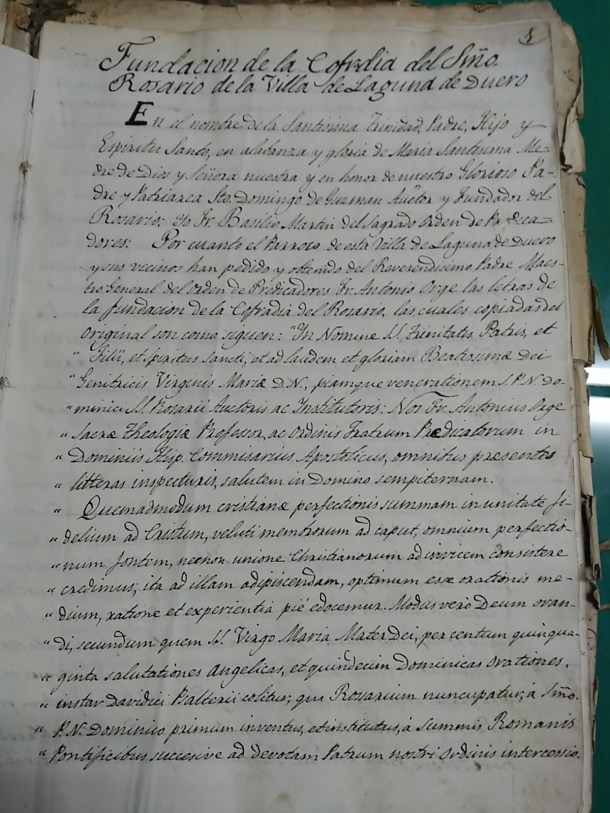 1
Fundacion de la Cofradia del Smo.
Rosario de la Villa de Laguna de Duero
En el nombre de la Santisima Trinidad, Padre, Hijo y
Espiritu Santo, en alabanza y gloria de Maria Santisima Ma-
dre de Dios y Señora nuestra y en honor de nuestro Glorioso Pa-
dre y Patriarca Sto. Domingo de Guzman Autor y Fundador del
Rosario: Yo Fr. Basilio Martin del Sagrado Orden de Predica-
dores: Por cuanto el Parroco de esta Villa de Laguna de Duero
y sus vecinos han pedido y obtenido del Reverendisimo Padre Maes-
tro General del Orden de Predicadores Fr. Antonio Orge las letras de
la fundacion de la Cofradia del Rosario, las cuales copiadas del
original son como siguen: "In Nomine SS. Trinitatis Patris, et
" Filii, et Spiritus Sancti, et ad laudem et gloriam Beatissimæ Dei
" Genitricis Virginis Mariæ D.N., piamque venerationem S.P.N. Do-
" minici SS. Rosarii Auctoris ac Institutoris: Nos Fr. Antonius Orge
" Sacræ Theologiæ Professor, ac Ordinis Fratrum Prædicatorum in
" Dominiis Hisp. Commisarius Apostolicus, omnibus presentes
" litteras inspecturis, salutem in Domino sempiternam.
" Quemadmodum cristianæ perfectionis summam in unitate fi-
" delium ad Cristum, veluti membrorum ad caput, omnium perfectio-
" num fontem, necnon unione Christianorum ad invicem consistere
" credimus; ita ad illam adipiscendam, optimum esse orationis me-
" dium, ratione et experientiâ piè edocemur. Modus verò Deum oran-
" di, secundum quem SS. Virgo Maria Mater Dei, per centum quinqua-
" ginta salutationes Angelicas, et quindecim Dominicas orationes,
" instar Davidici Psalterii colitur; qus Rosarium nuncupatur, á Smo.
" P.N. Dominico primum inventus, et institutus, á Summis Romanis
" Pontificibus succesive ad devotam Patrum nostri Ordinis intercessio.